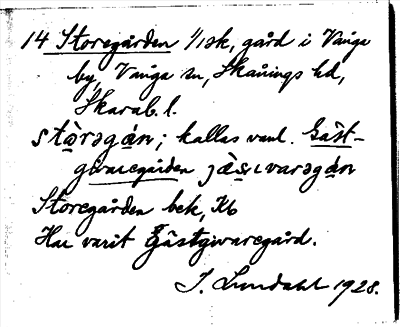 14 Storegården 1/1 sk, gård i Vånga
by, Vånga sn, Skånings hd,
Skarab. l.
stɷ̀rəgán; kallas vanl. Gäst-
givaregården jɷ̀sɩvarəgán
Storegården bek, Kb
Har varit Gästgivaregård.
J. Lundahl 1928.